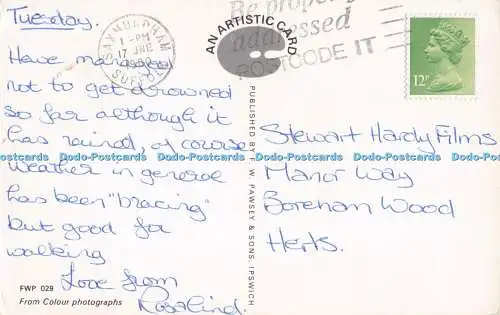 Tuesday.
Have managed
not to get drowned
so far although it
has rained, of course
weather in general
has been "bracing"
but good for
walking
Love from
Rosalind.
FWP 029
From Colour photographs
SAXMUNDHAM
1 - PM
17 JNE
SUFFOLK
AN ARTISTIC CARD
PUBLISHED BY F. W. PAWSEY & SONS, IPSWICH
Be properly
addressed
POSTCODE IT
12P
Stewart Hardy Films
Manor Way
Boreham Wood
Herts.
Dodo-Postcards Dodo-Postcards Dodo-Postcards Dodo-Postcards Dodo-Postcards Dodo-Postcards